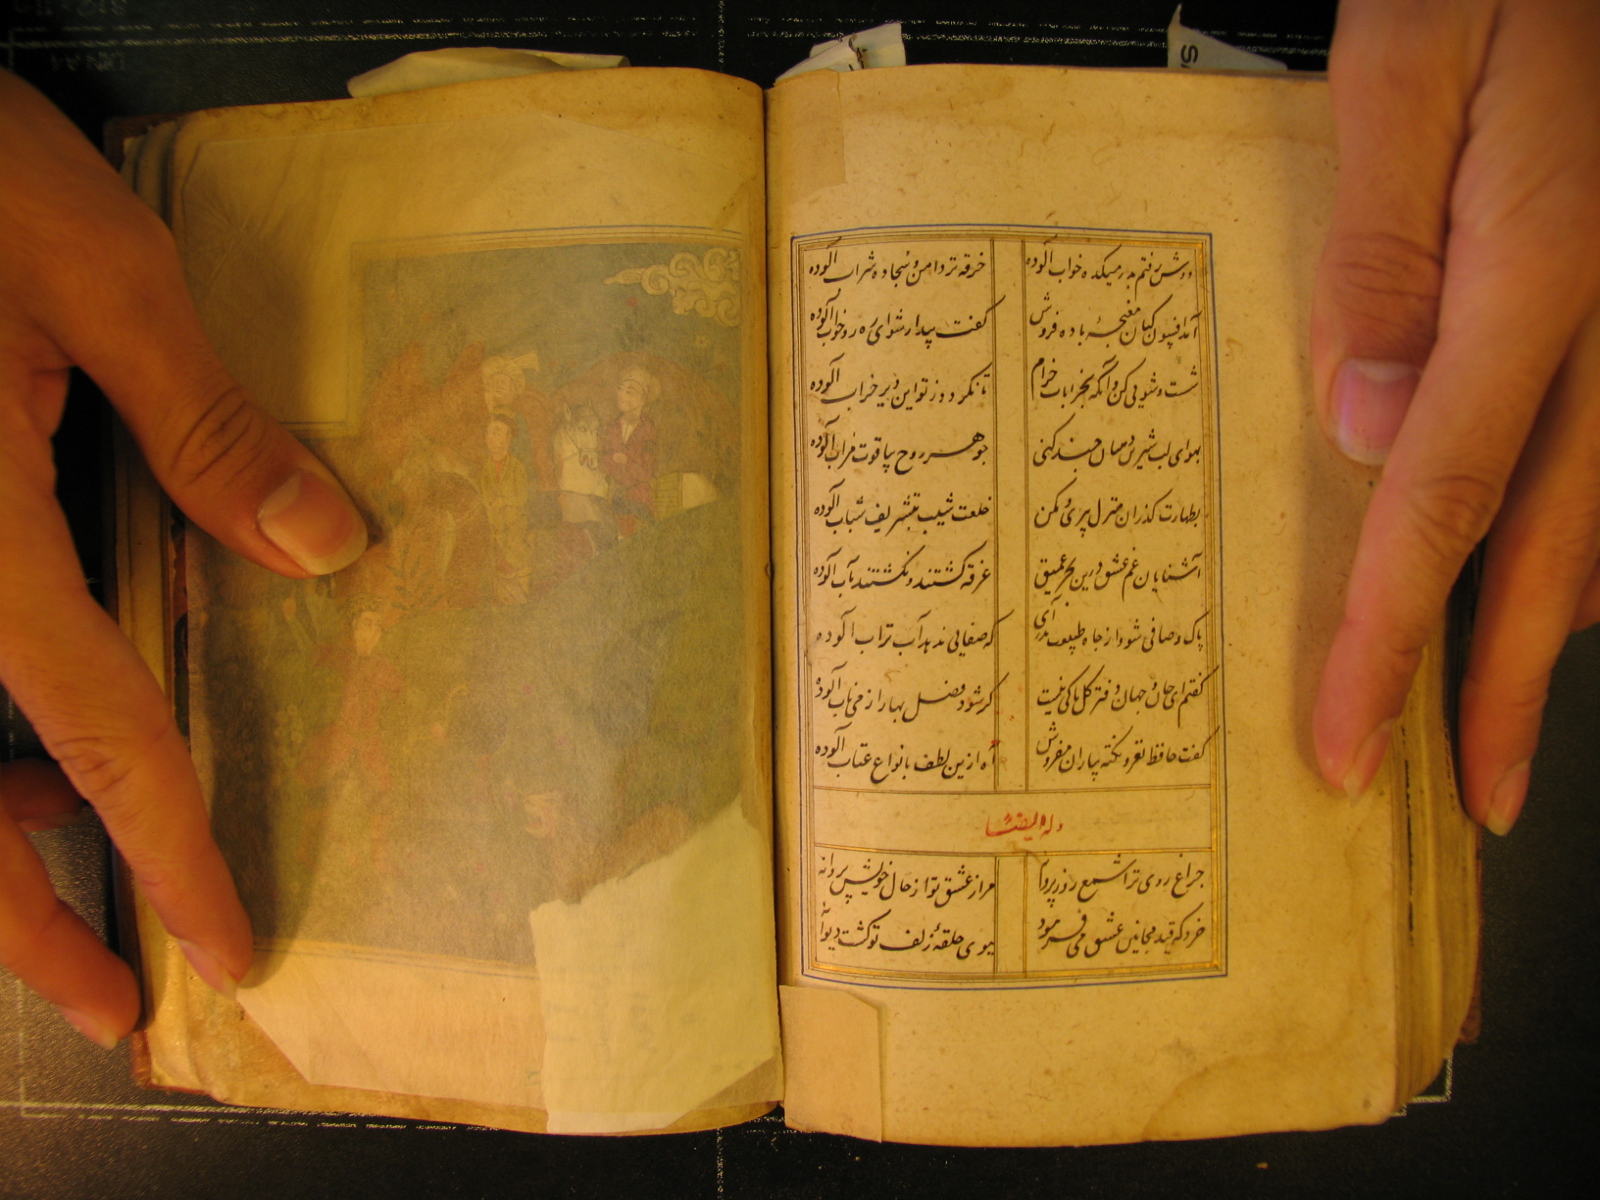 دوش رفتم بدر میکده خواب آلوده
خرقه تر دامن و سجاده شراب آلوده
آمد افسوس کنان مغبچهٔ باده فروش
گفت بیدار شو ای ره رو خواب آلوده
شست و شویی کن و آنگه بخرابات خرام
تا نگردد ز تو این دیر خراب آلوده
بهوای لب شیرین دهنان چند کنی
جوهر روح بیاقوت مذاب آلوده
بطهارت گذران منزل پیری و مکن
خلعت شیب بتشریف شباب آلوده
آشنایان غم عشق درین بحر عمیق
غرقه گشتند و نگشتند بآب آلوده
پاک و صافی شو و از چاه طبیعت بدر آی
که صفایی ندهد آب تراب آلوده
گفتم ای جان و جهان دفتر گل باکی نیست
گر شود فصل بهار از می ناب آلوده
گفت حافظ لغز و نکته بیاران مفروش
آه ازین لطف بانواع عتاب آلوده
وله ایضا
چراغ روی ترا شمع روز پروانه
مرا ز عشق تو از حال خویش پروا نه
خرد که قید مجانین عشق می فرمود
ببوی حلقهٔ زلف تو گشت دیوانه